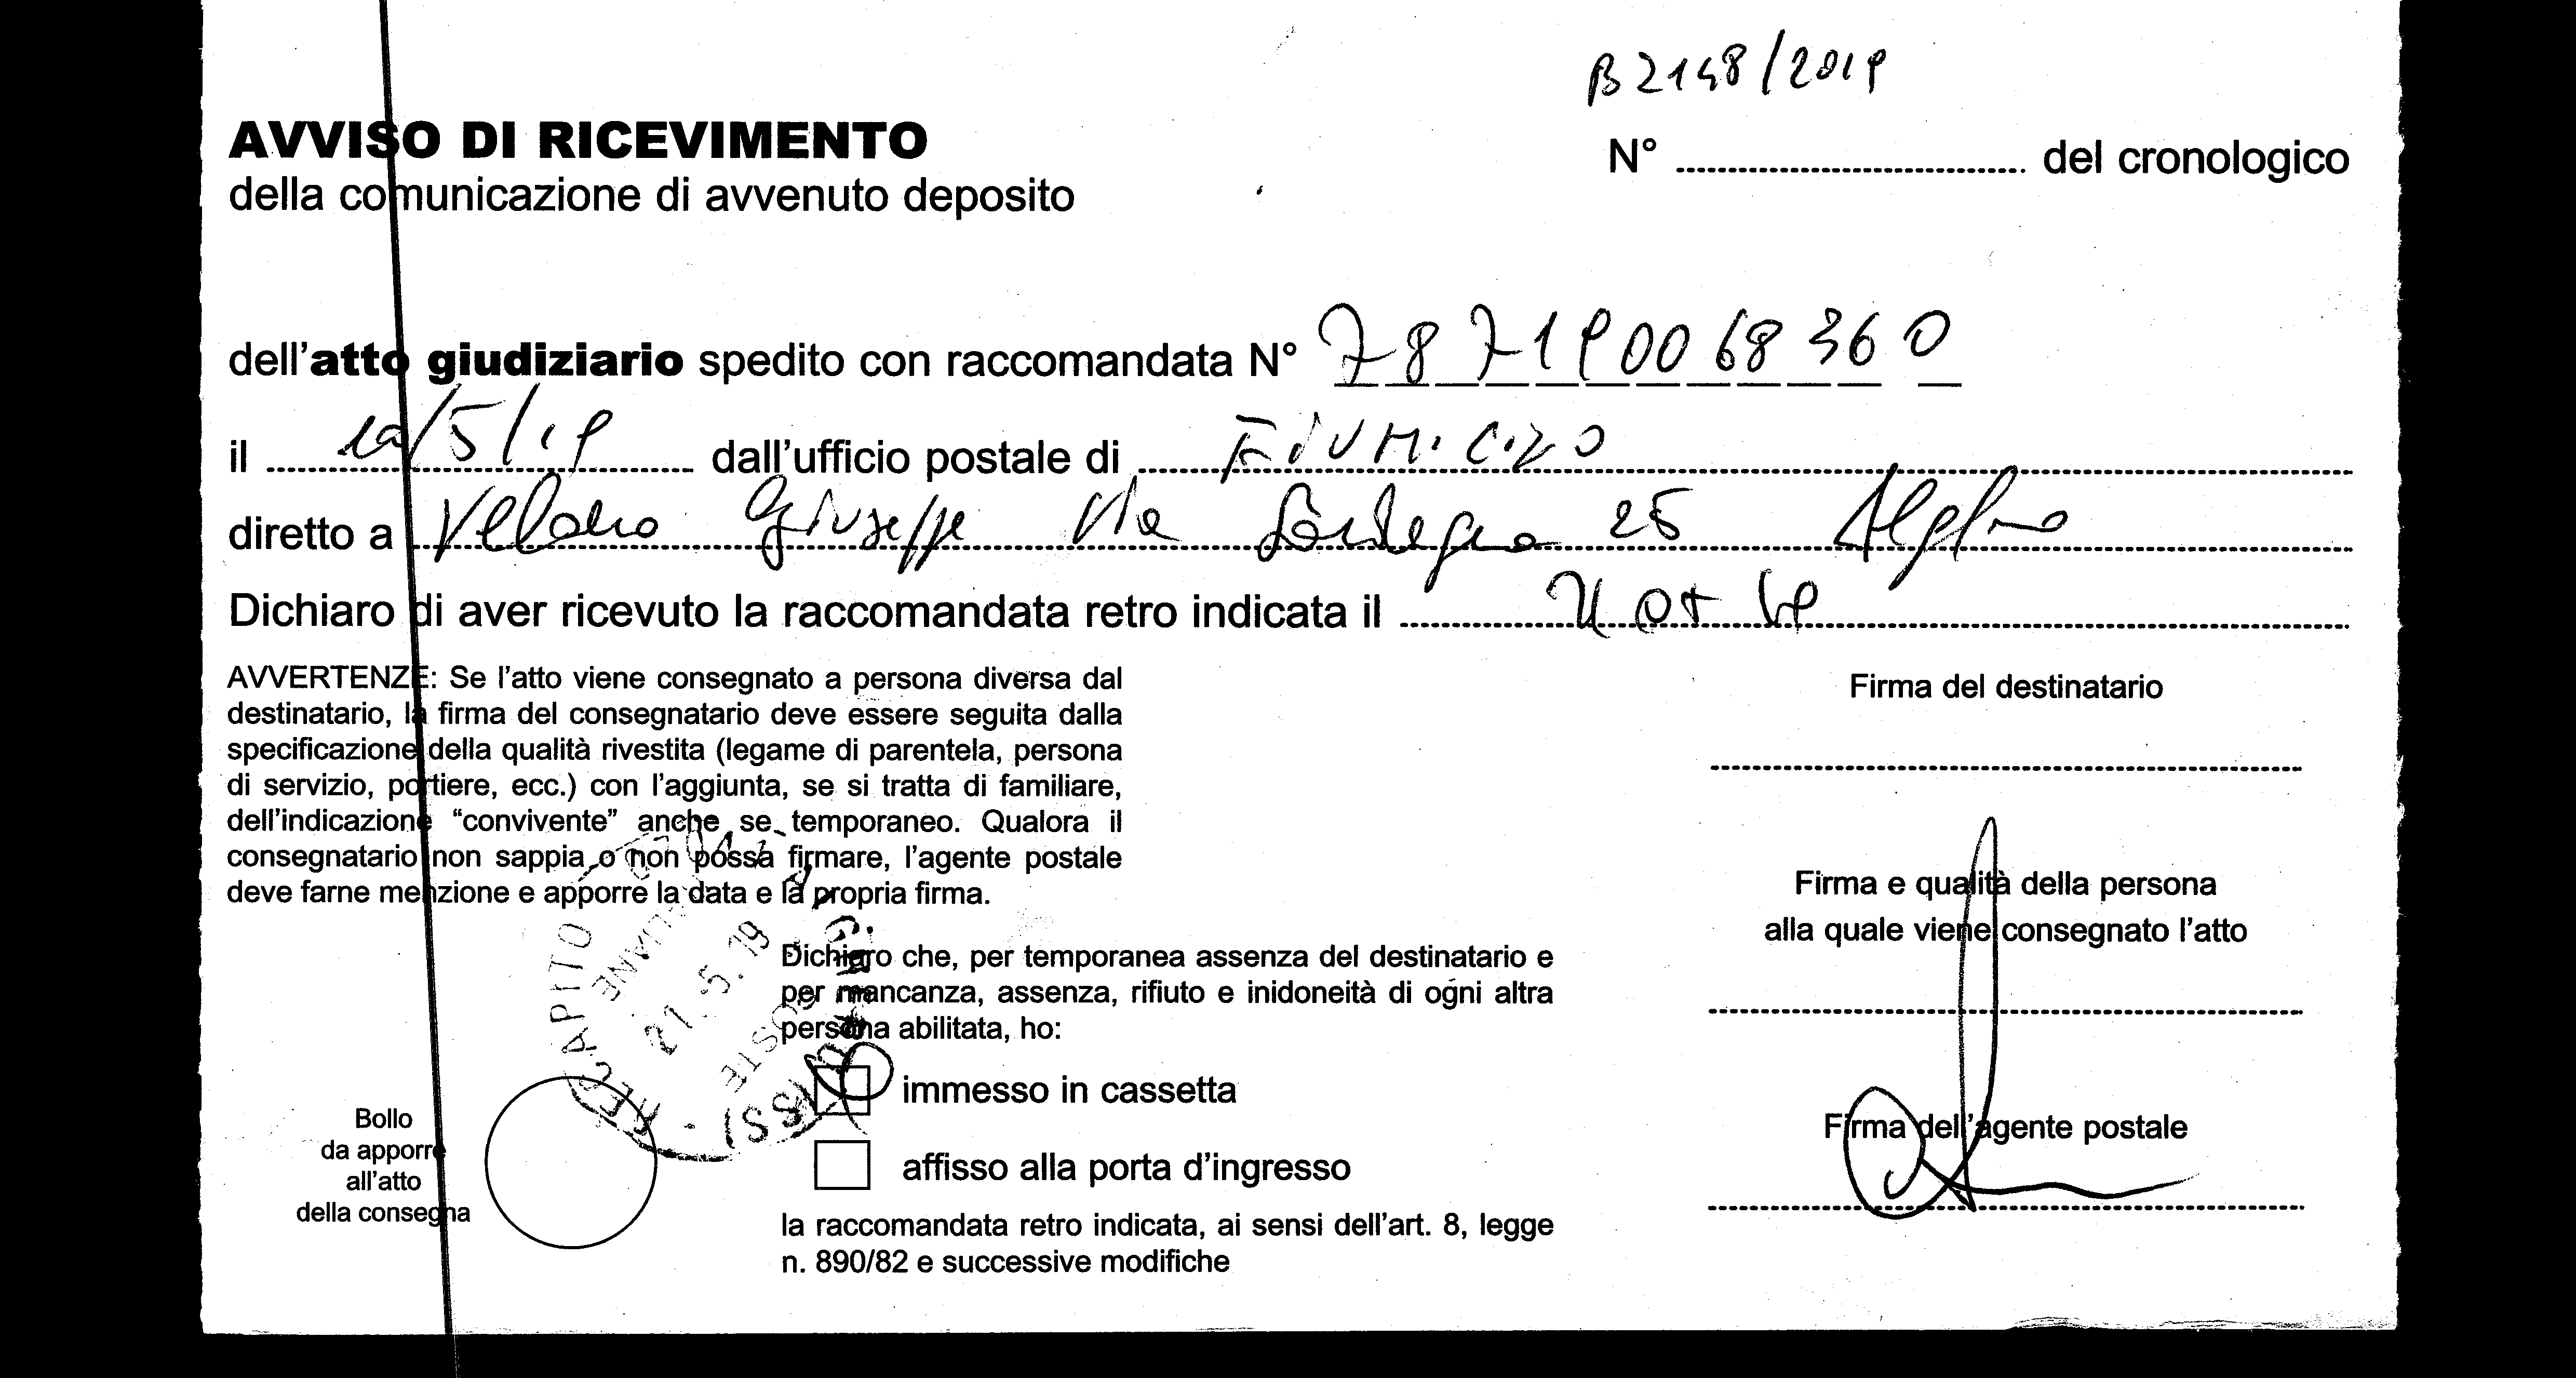 B 2148/2019
AVVISO DI RICEVIMENTO
della comunicazione di avvenuto deposito
N° del cronologico
dell'atto giudiziario spedito con raccomandata N° 787190068360
il 10/5/19 dall'ufficio postale di
diretto a Giuseppe Via Sardegna 25
Dichiaro di aver ricevuto la raccomandata retro indicata il
AVVERTENZE: Se l'atto viene consegnato a persona diversa dal
destinatario, la firma del consegnatario deve essere seguita dalla
specificazione della qualità rivestita (legame di parentela, persona
di servizio, portiere, ecc.) con l'aggiunta, se si tratta di familiare,
dell'indicazione “convivente” anche se temporaneo. Qualora il
consegnatario non sappia o non possa firmare, l'agente postale
deve farne menzione e apporre la data e la propria firma.
Firma del destinatario
Firma e qualità della persona
alla quale viene consegnato l'atto
Firma dell'agente postale
RECAPITO
21.5.19
POSTE
Dichiaro che, per temporanea assenza del destinatario e
per mancanza, assenza, rifiuto e inidoneità di ogni altra
persona abilitata, ho:
immesso in cassetta
affisso alla porta d'ingresso
la raccomandata retro indicata, ai sensi dell'art. 8, legge
n. 890/82 e successive modifiche
Bollo
da apporre
all'atto
della consegna